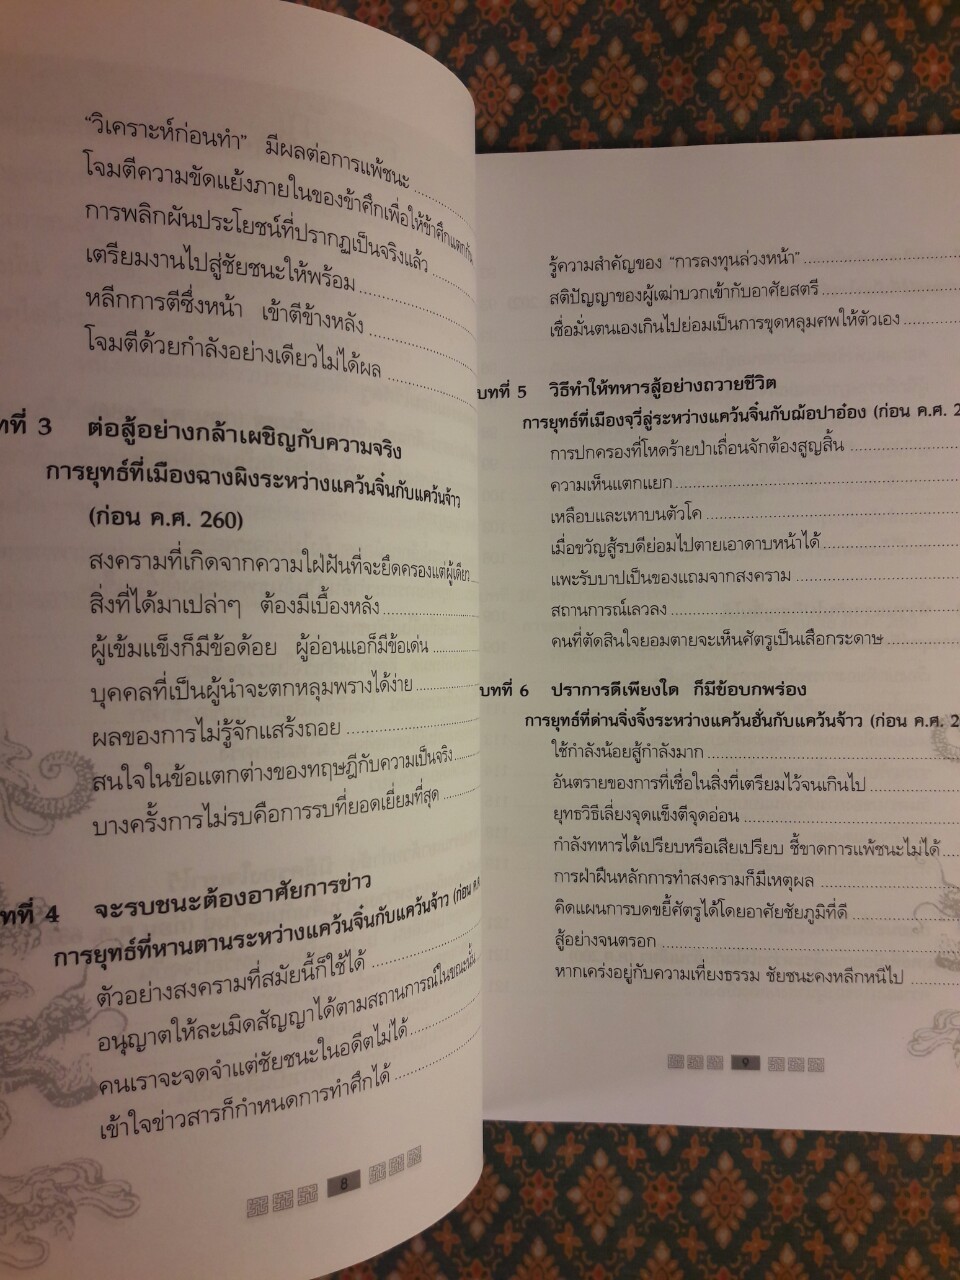 “วิเคราะห์ก่อนทำ” มีผลต่อการแพ้ชนะ
โจมตีความขัดแย้งภายในของข้าศึกเพื่อให้ข้าศึกแตกกัน
การพลิกผันประโยชน์ที่ปรากฏเป็นจริงแล้ว
เตรียมงานไปสู่ชัยชนะให้พร้อม
หลีกการตีซึ่งหน้า เข้าตีข้างหลัง
โจมตีด้วยกำลังอย่างเดียวไม่ได้ผล
ทที่ 3 ต่อสู้อย่างกล้าเผชิญกับความจริง
การยุทธ์ที่เมืองฉางผิงระหว่างแคว้นจิ๋นกับแคว้นจ้าว
(ก่อน ค.ศ. 260)
สงครามที่เกิดจากความใฝ่ฝันที่จะยึดครองแต่ผู้เดียว
สิ่งที่ได้มาเปล่าๆ ต้องมีเบื้องหลัง
ผู้เข้มแข็งก็มีข้อด้อย ผู้อ่อนแอก็มีข้อเด่น
บุคคลที่เป็นผู้นำจะตกหลุมพรางได้ง่าย
ผลของการไม่รู้จักแสร้งถอย
สนใจในข้อแตกต่างของทฤษฎีกับความเป็นจริง
บางครั้งการไม่รบคือการรบที่ยอดเยี่ยมที่สุด
ทที่ 4 จะรบชนะต้องอาศัยการข่าว
การยุทธ์ที่หานตานระหว่างแคว้นจิ๋นกับแคว้นจ้าว (ก่อน ค.ศ
ตัวอย่างสงครามที่สมัยนี้ก็ใช้ได้
อนุญาตให้ละเมิดสัญญาได้ตามสถานการณ์ในขณะนั้น
คนเราจะจดจำแต่ชัยชนะในอดีตไม่ได้
เข้าใจข่าวสารก็กำหนดการทำศึกได้
8
รู้ความสำคัญของ “การลงทุนล่วงหน้า”
สติปัญญาของผู้เฒ่าบวกเข้ากับอาศัยสตรี
เชื่อมั่นตนเองเกินไปย่อมเป็นการขุดหลุมศพให้ตัวเอง
บทที่ 5 วิธีทำให้ทหารสู้อย่างถวายชีวิต
การยุทธ์ที่เมืองจวี้ลู่ระหว่างแคว้นจิ๋นกับฌ้อปาอ๋อง (ก่อน ค.ศ. 2
การปกครองที่โหดร้ายป่าเถื่อนจักต้องสูญสิ้น
ความเห็นแตกแยก
เหลือบและเหาบนตัวโค
เมื่อขวัญสู้รบดีย่อมไปตายเอาดาบหน้าได้
แพะรับบาปเป็นของแถมจากสงคราม
สถานการณ์เลวลง
คนที่ตัดสินใจยอมตายจะเห็นศัตรูเป็นเสือกระดาษ
บทที่ 6 ปราการดีเพียงใด ก็มีข้อบกพร่อง
การยุทธ์ที่ด่านจิ่งจิ้งระหว่างแคว้นฮั่นกับแคว้นจ้าว (ก่อน ค.ศ. 2
ใช้กำลังน้อยสู้กำลังมาก
อันตรายของการที่เชื่อในสิ่งที่เตรียมไว้จนเกินไป
ยุทธวิธีเลี่ยงจุดแข็งตีจุดอ่อน
กำลังทหารได้เปรียบหรือเสียเปรียบ ชี้ขาดการแพ้ชนะไม่ได้
การฝ่าฝืนหลักการทำสงครามก็มีเหตุผล
คิดแผนการบดขยี้ศัตรูได้โดยอาศัยชัยภูมิที่ดี
สู้อย่างจนตรอก
หากเคร่งอยู่กับความเที่ยงธรรม ชัยชนะคงหลีกหนีไป
9